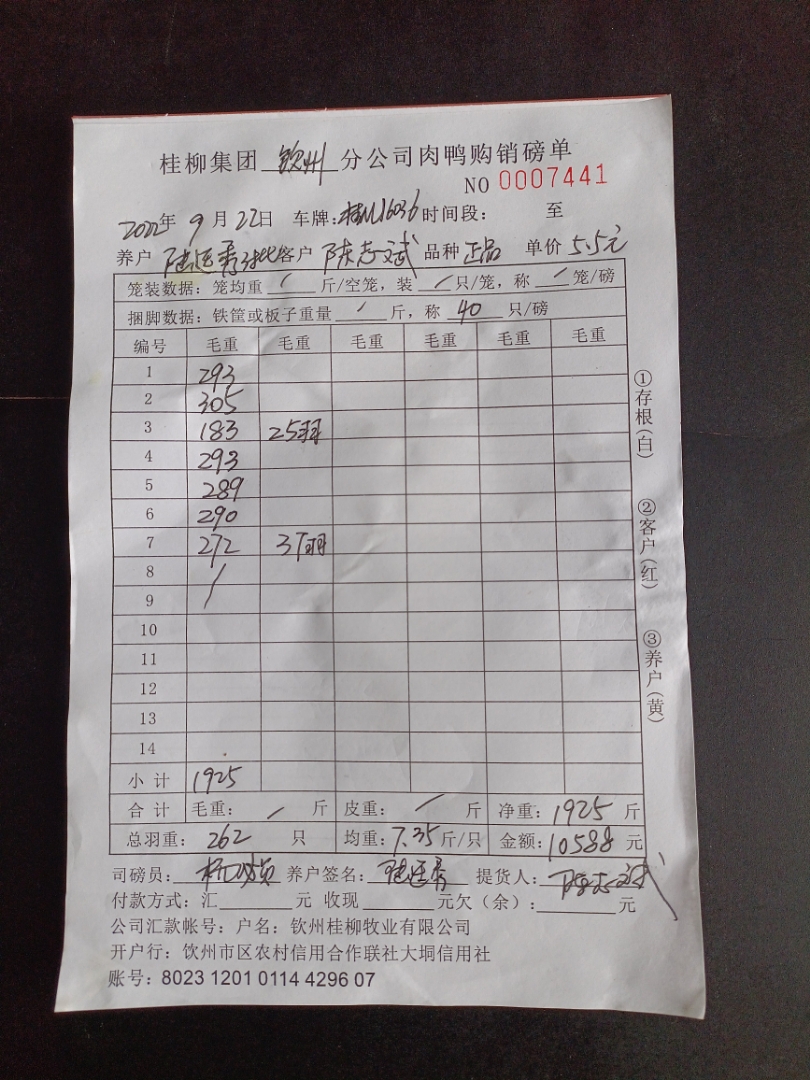 桂柳集团 钦州 分公司肉鸭购销磅单
NO 0007441
2022年 9月22日 车牌: 时间段: 至
养户 客户 陈志斌 品种 正品 单价 5.5元
笼装数据: 笼均重 / 斤/空笼, 装 / 只/笼, 称 / 笼/磅
捆脚数据: 铁筐或板子重量 / 斤, 称 40 只/磅
编号 毛重 毛重 毛重 毛重 毛重 毛重
1 293
2 305
3 183 25羽
4 293
5 289
6 290
7 272 37羽
8 /
9
10
11
12
13
14
小计 1925
合计 毛重: / 斤 皮重: / 斤 净重: 1925 斤
总羽重: 262 只 均重: 7.35 斤/只 金额: 10588 元
司磅员: 养户签名: 提货人: 陈志斌
付款方式: 汇 元 收现 元欠(余): 元
公司汇款帐号: 户名: 钦州桂柳牧业有限公司
开户行: 钦州市区农村信用合作联社大垌信用社
账号: 8023 1201 0114 4296 07
①存根(白)
②客户(红)
③养户(黄)